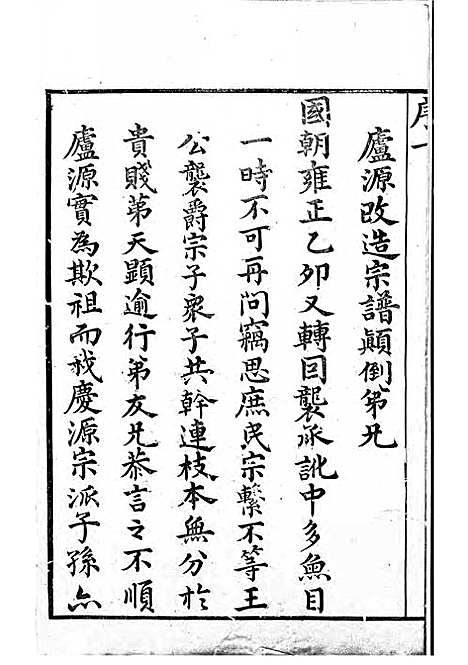 序一
盧源改造宗譜顛倒弟兄
國朝雍正乙卯又轉回襲承訛中多魚目
一時不可再問竊思庶民宗繫不等王
公襲爵宗子衆子共幹連枝本無分於
貴賤苐天顯逾行苐友兄恭言之不順
盧源實為欺祖而我慶源宗派子孫亦